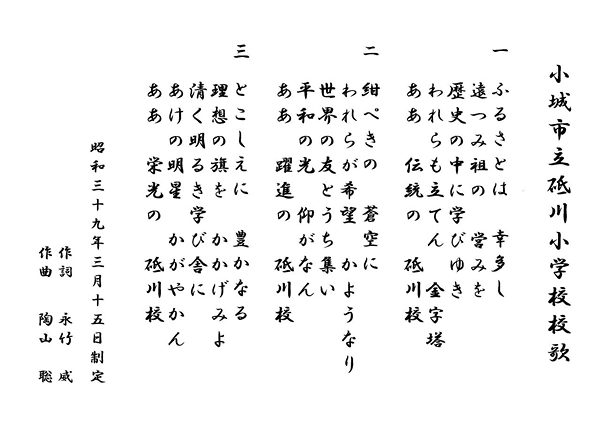 小城市立砥川小学校校歌
一 ふるさとは 幸多し
遠つみ祖の 営みを
歴史の中に学びゆき
われらも立てん 金字塔
ああ 伝統の 砥川校
二 紺ぺきの 蒼空に
われらが希望 かようなり
世界の友とうち集い
平和の光 仰がなん
ああ 躍進の 砥川校
三 とこしえに 豊かなる
理想の旗を かかげみよ
清く明るき学び舎に
あけの明星 かがやかん
ああ 栄光の 砥川校
昭和三十九年三月十五日制定
作詞 永竹 威
作曲 陶山 聡